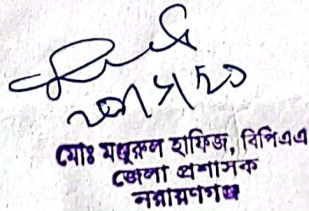 মোঃ মঞ্জুরুল হাফিজ, বিপিএএ
জেলা প্রশাসক
নারায়ণগঞ্জ